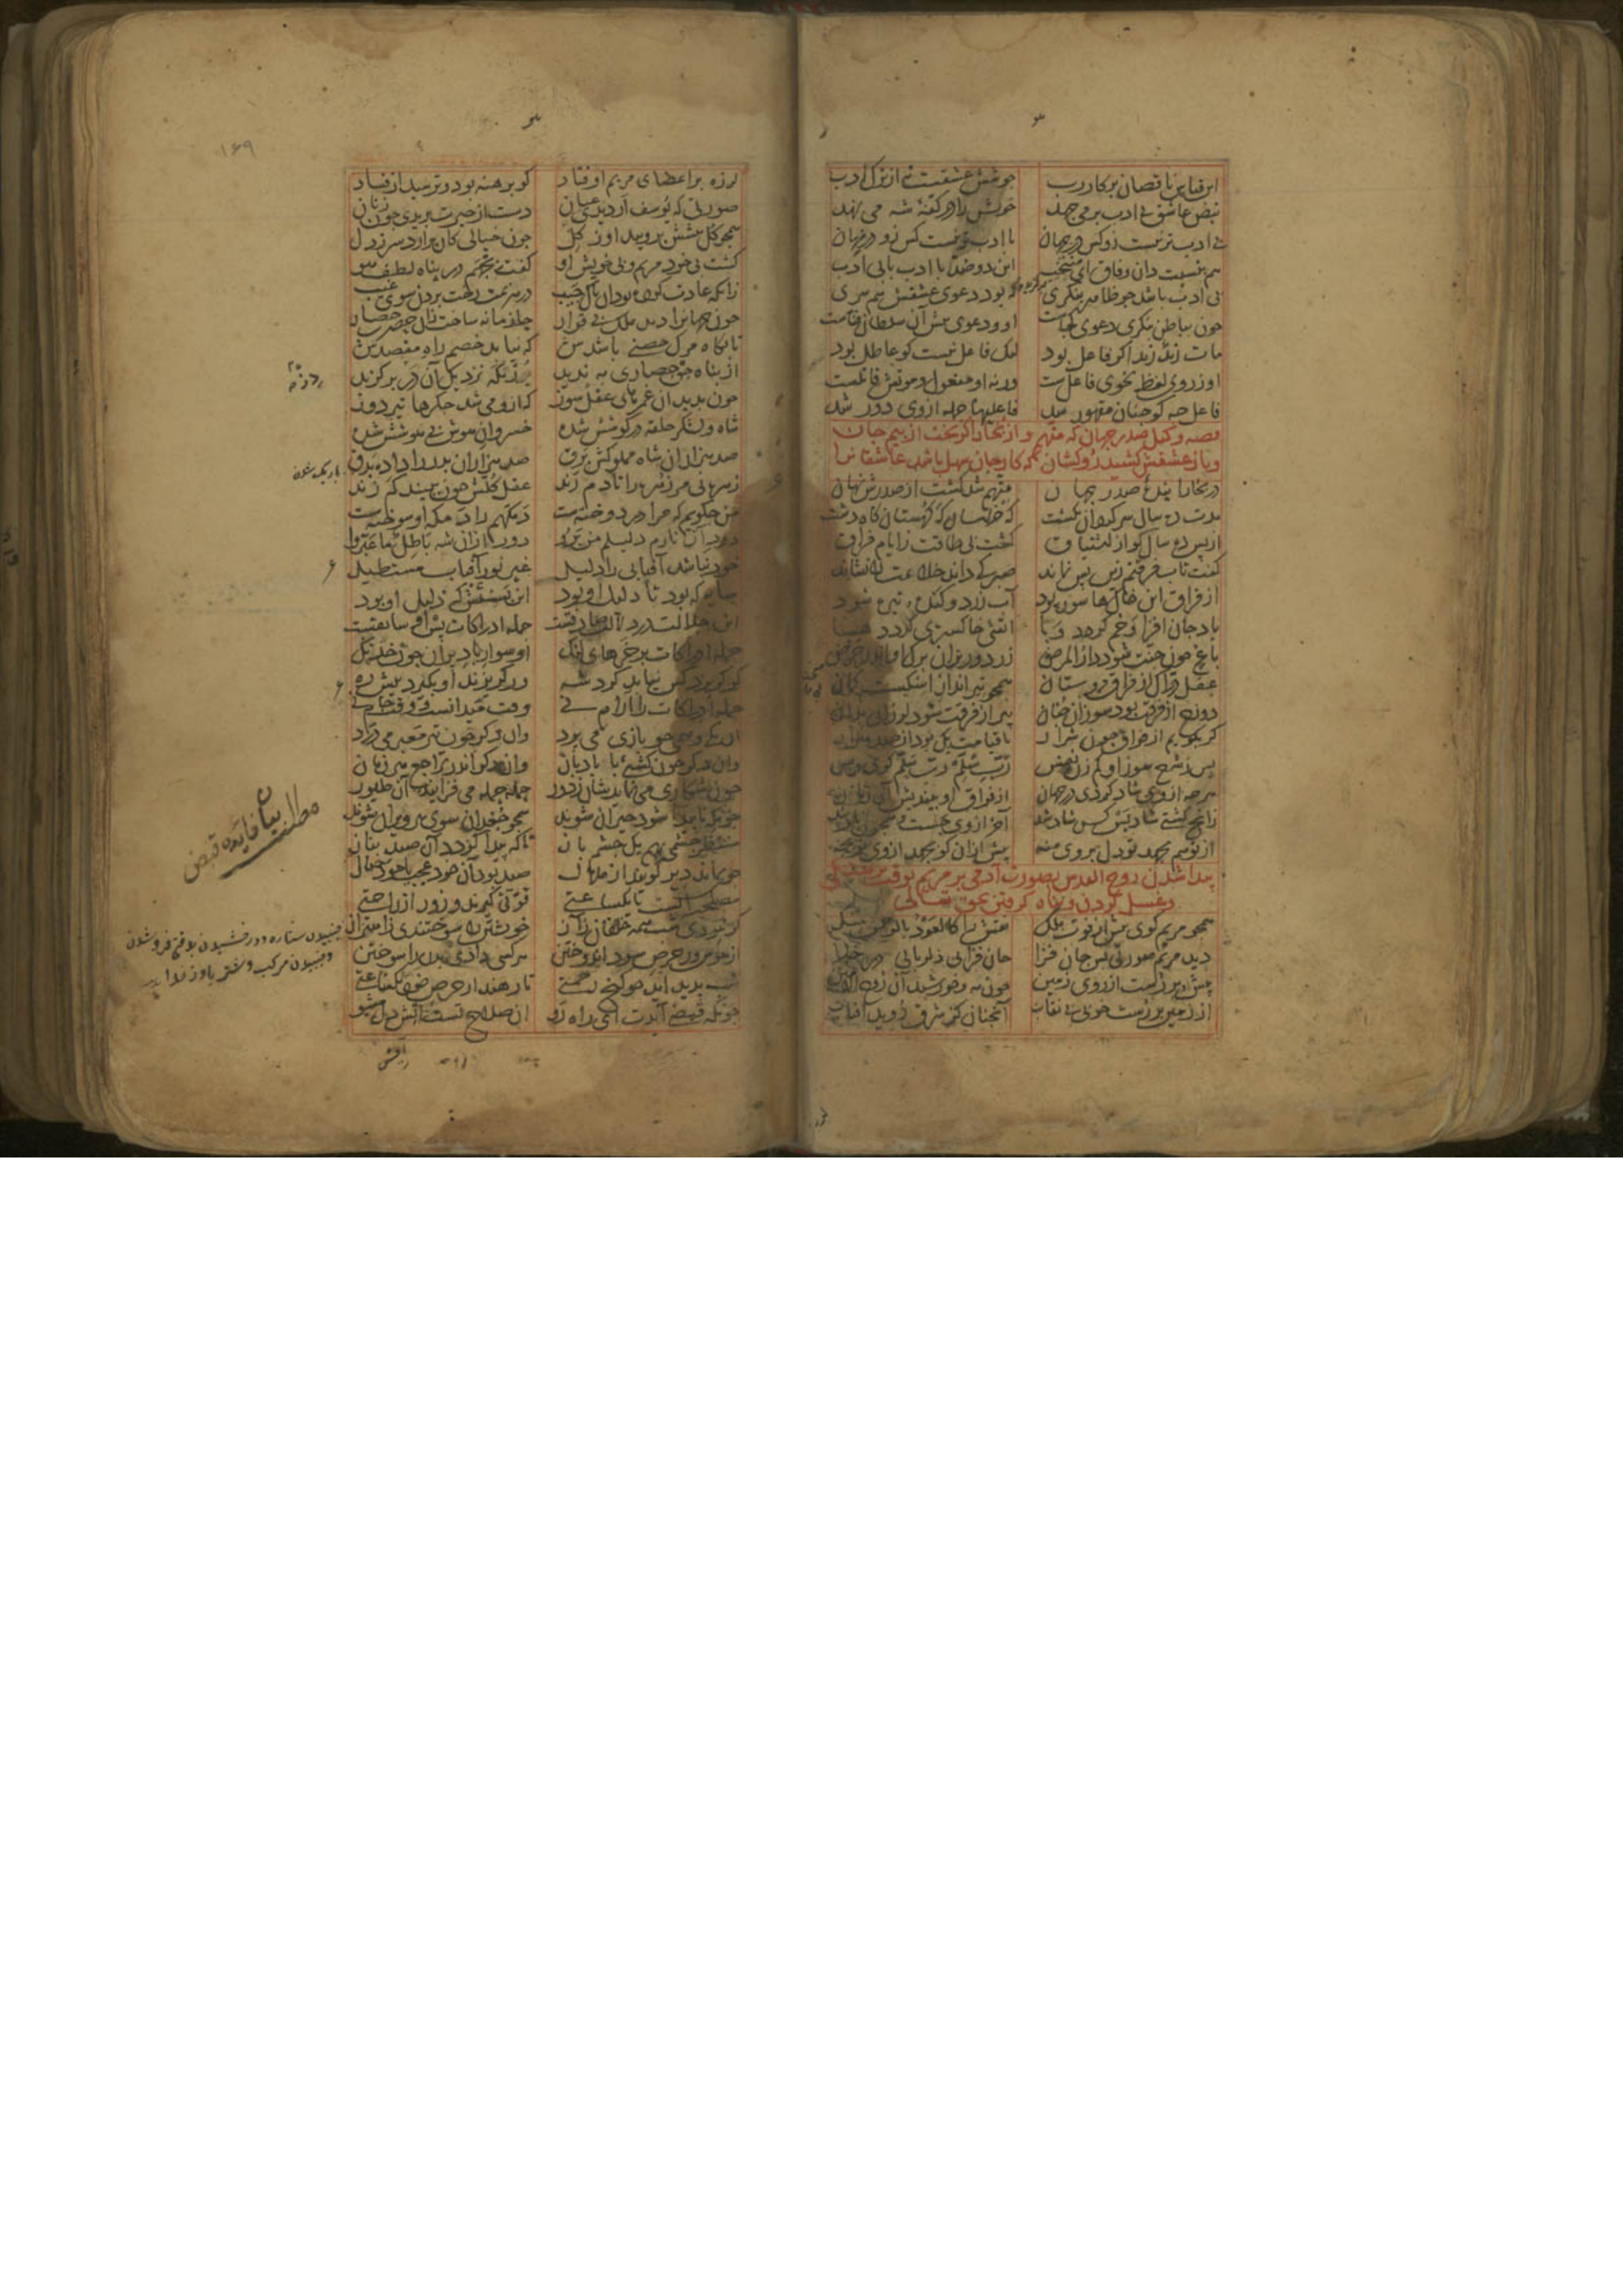 ۳
این قیاس ناقصان بر کار رب جوشش عشقست نه از ترک ادب
نبض عاشق بی ادب بر می‌جهد خویش را در کفهٔ شه می نهد
بی ادب‌تر نیست زو کس در جهان با ادب‌تر نیست کس زو در نهان
هم بنسبت دان وفاق ای منتخب این دو ضد با ادب با بی ادب
بی ادب باشد چو ظاهر بنگری که بود دعوی عشقش هم سری
چون بباطن بنگری دعوی کجاست او و دعوی پیش آن سلطان فناست
مات زید زید اگر فاعل بود لیک فاعل نیست کو عاطل بود
او ز روی لفظ نحوی فاعل‌ست ورنه او مفعول و موتش قاتلست
فاعل چه کو چنان مقهور شد فاعلیها جمله از وی دور شد
قصه وکیل صدر جهان که متهم و از بخارا گریخت از بیم جان
و باز عشقش کشید رو کشان که کار جان سهل باشد عاشقانرا
در بخارا بنده صدر جهان متهم شد گشت از صدرش نهان
مدت ده سال سرگردان بگشت گه خراسان گه کهستان گاه دشت
از پس ده سال کو از اشتیاق گشت بی طاقت ز ایام فراق
گفت تاب فرقتم زین پس نماند صبر کی داند خلاعت را نشاند
از فراق این خاکها شوره بود آب زرد و گنده و تیره شود
باد جان افزا وخم گردد وبا آتشی خاکستری گردد هبا
باغ چون جنت شود دار المرض زرد و ریزان برگ او اندر حرض
عقل دراک از فراق دوستان همچو تیرانداز اشکسته کمان
دوزخ از فرقت بود سوزان چنان پیر از فرقت شود لرزان بدان
گر بگویم از فراق چون شرار تا قیامت یک بود از صد هزار
پس ز شرح سوز او کم زن نفس رب سلم رب سلم گوی و بس
هر چه از وی شاد گردی در جهان از فراق او بیندیش آن زمان
زانچ گشتی شاد بس کس شاد شد آخر از وی جست و همچون باد شد
از تو هم بجهد تو دل بر وی منه پیش از آن کو بجهد از وی تو بجه
پیدا شدن روح القدس بصورت آدمی بر مریم بوقت برهنگی
و غسل کردن و پناه گرفتن بحق تعالی
همچو مریم گوی پیش از فوت ملک نقش را کالعوذ بالرحمن منک
دید مریم صورتی بس جان فزا جان فزایی دلربایی در خلا
پیش او بر رست از روی زمین چون مه و خورشید آن روح الامین
از زمین بر رست خوبی بی نقاب آنچنان کز شرق روید آفتاب
۳
۱۶۹
لرزه بر اعضای مریم اوفتاد کو برهنه بود و ترسید از فساد
صورتی که یوسف ار دیدی عیان دست از حیرت بریدی چون زنان
همچو گل پیشش بروید او ز گل چون خیالی کان برآرد سر ز دل
گشت بی خود مریم و بی خویش او گفت بجهم در پناه لطف هو
زانکه عادت کرده بود آن پاک جیب در هزیمت رخت بردن سوی غیب
چون جهانرا دید ملک بی قرار حازمانه ساخت زان حضرت حصار
تا بگاه مرگ حصنی باشدش که نیابد خصم راه مقصدش
از پناه حق حصاری به ندید یورتگه نزدیک آن دز برگزید
چون بدید آن غمزهای عقل سوز که ازو می‌شد جگرها تیردوز
شاه و لشکر حلقه در گوشش شده خسروان هوش بی هوشش شده
صد هزاران شاه مملوکش برق صد هزاران بدر را داده بدق
زهره نی مر زهره را تا دم زند عقل کلش چون ببیند کم زند
من چگویم که مرا در دوخته‌ست دمگهم را دمگه او سوخته‌ست
دود آن نارم دلیلم من برو دور از آن شه باطل ما عبروا
خود نباشد آفتابی را دلیل غیر نور آفتاب مستطیل
سایه که بود تا دلیل او بود این بسستش که ذلیل او بود
این جلالت در دلالت صادقست جمله ادراکات پس او سابقست
جمله ادراکات بر خرهای لنگ او سوار باد پران چون خدنگ
گر گریزد کس نیابد گرد شه ور گریزند او بگیرد پیش ره
جمله ادراکات را آرام نی وقت میدانست و وقت جام نی
آن یکی وهمی چو بازی می‌پرد وان دگر چون تیر معبر می‌درد
وان دگر چون کشتی با بادبان وان دگر اندر تراجع هر زمان
چون شکاری می‌نمایدشان ز دور جمله حمله می‌فزایند آن طیور
چونکه ناپیدا شود حیران شوند همچو جغدان سوی هر ویران شوند
منتظر چشمی بهم یک چشم باز تا که پیدا گردد آن صید بناز
چون بماند دیر گویند از ملال صید بود آن خود عجب یا خود خیال
مصلحت آنست تا یک ساعتی قوتی گیرند و زور از راحتی
گر نبودی شب همه خلقان ز آز خویشتن را سوختندی ز اهتزاز
از هوس وز حرص سود اندوختن هر کسی دادی بدن را سوختن
شب پدید آید چو گنج رحمتی تا رهند از حرص خود یکساعتی
چونکه قبضی آیدت ای راه رو آن صلاح تست آتش دل مشو
باریک شدن
مطلب بیان فایده قبض